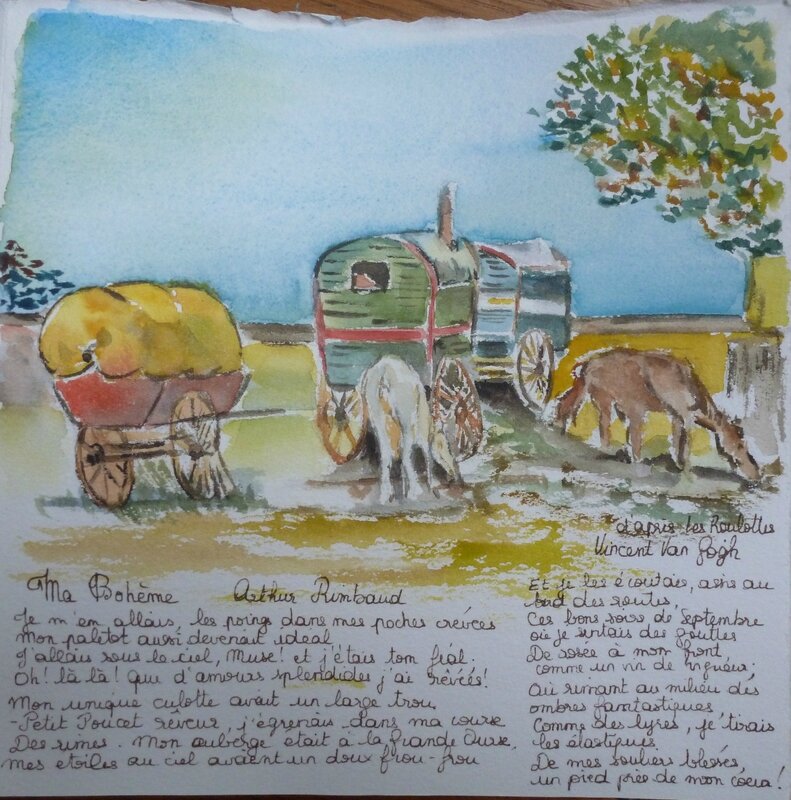 d'après Les Roulottes
Vincent Van Gogh
Ma Bohème Arthur Rimbaud
Je m'en allais, les poings dans mes poches crévées
Mon paletot aussi devenait ideal
J'allais sous le ciel, Muse! et j'étais ton féal.
Oh! là là! que d'amours splendides j'ai rêvées!
Mon unique culotte avait un large trou
-Petit Poucet rêveur, j'égrenais dans ma course
Des rimes. Mon auberge était à la Grande Ourse,
mes etoiles au ciel avaient un doux frou-frou
Et je les écoutais, assis au
bord des routes,
Ces bons soirs de Septembre
où je sentais des gouttes
De rosée à mon front
comme un vin de vigueur;
Où rimant au milieu des
ombres fantastiques
Comme des lyres, je tirais
les élastiques
De mes souliers blessés,
un pied près de mon coeur!